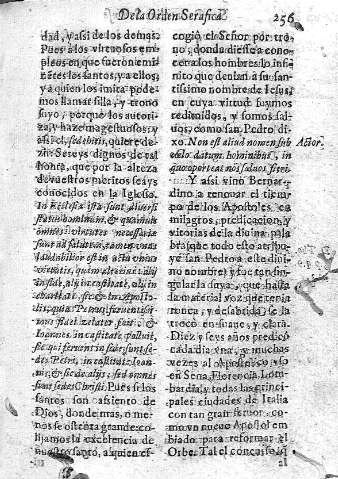 De la Orden Serafica. 256
dad, y assi de los demas.
Pues a los virtuosos em-
pleos en que fueron emi-
nētes los santos, ya ellos,
y a quien los imita pode-
mos llamar silla, y trono
suyo, porque los autori-
za, y haze magestuosos, y
el si, sedebitis, quiere de-
zir. Sereys dignos de tal
honra, que por la alteza
de vuestros meritos seays
conocidos en la Iglesia.
In Ecclesia ista sunt diuersi
status hominum, & quamuis
omnes virtutes necessariæ
sunt ad salutem, tamen vnus
laudabilior est in actu vnius
virtutis, quam alterius: alij
in fide, alij in castitate, alij in
charitate, sic & in Aposto-
lis, quia Petrus
fidei zelator fuit, &
Ioannes in castitate polluit,
sic qui feruent in fide sunt se-
des Petri, in castitate Ioan-
nis, & sic de alijs, sed omnes
sunt sedes Christi. Pues si los
santos son assiento de
Dios, donde mas, o me-
nos se ostenta grande: co-
lijamos la excelencia de
nuestro santo, a quien es-
cogió el Señor por tro-
no, donde diesse a cono-
cer a los hombres lo infi-
nito que deuian a su san-
tissimo nombre de Iesus,
en cuya virtud fuymos
redimidos, y somos sal-
uos, como san Pedro di-
xo. Non est aliud nomen sub
cælo datum hominibus, in
quo oporteat nos saluos fieri.
Actor.
Y assi vino Bernar-
dino a renouar el tiem-
po de los Apostoles, cō
milagros, predicacion, y
vitorias de la diuina pala-
bra;
san Pedro a este di-
uino nombre; y fue tan sin-
gular la suya, que hasta
la material voz que tenia
ronca, y desabrida, se la
trocó en suaue, y clara.
Diez y seys años predicó
cada dia vna, y muchas
vezes al Apostolico vso
en Sena, Florencia, Lom-
bardia, y todas las princi-
pales ciudades de Italia
con tan gran feruor, co-
mo vn nueuo Apostol em-
biado para reformar el
Orbe. Tal el concurso
al